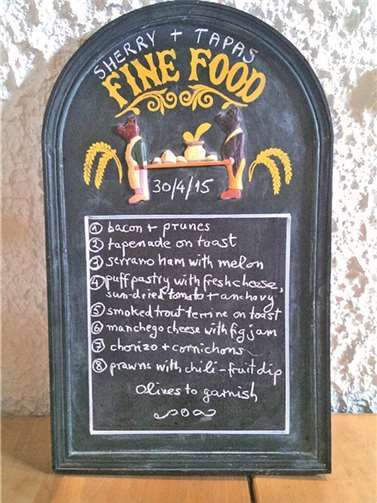 SHERRY + TAPAS
FINE FOOD
30/4/15
① bacon + prunes
② tapenade on toast
③ serrano ham with melon
④ puff pastry with fresh cheese,
sun-dried tomato + anchovy
⑤ smoked trout terrine on toast
⑥ manchego cheese with fig jam
⑦ chorizo + cornichons
⑧ prawns with chili-fruit dip
Olives to garnish